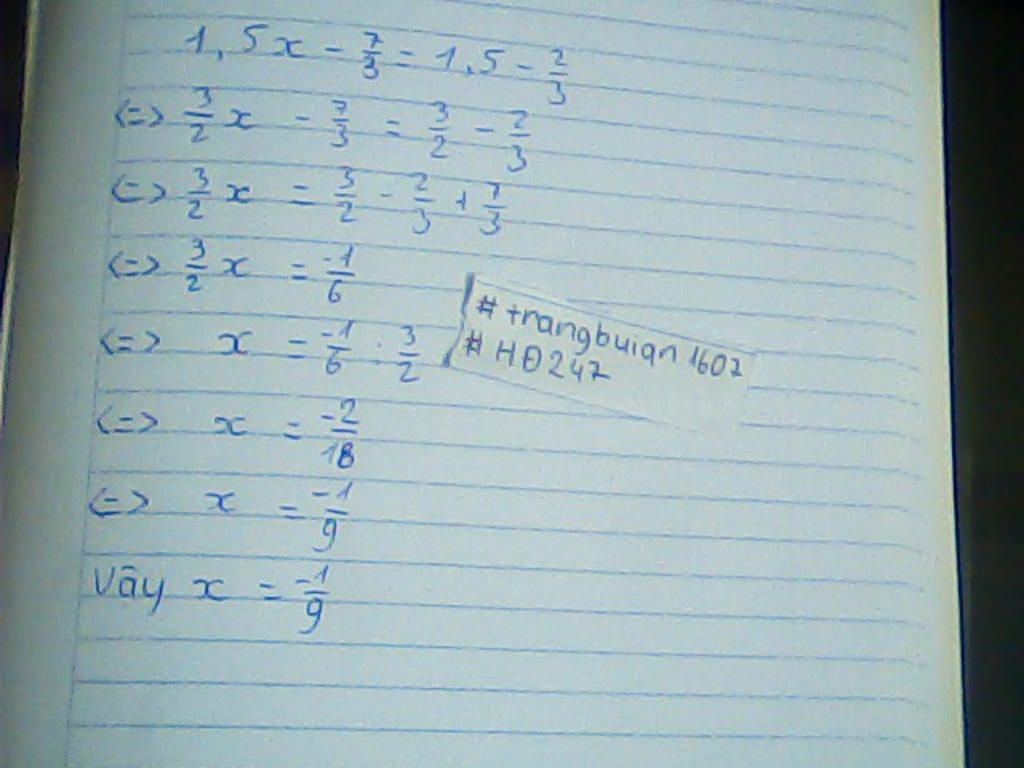 1,5x - 7/3 = 1,5 - 2/3
<=> 3/2 x - 7/3 = 3/2 - 2/3
<=> 3/2 x = 3/2 - 2/3 + 7/3
<=> 3/2 x = -1/6
<=> x = -1/6 : 3/2
<=> x = -2/18
<=> x = -1/9
Vây x = -1/9
# trangbuiqn 1607
# HĐ247